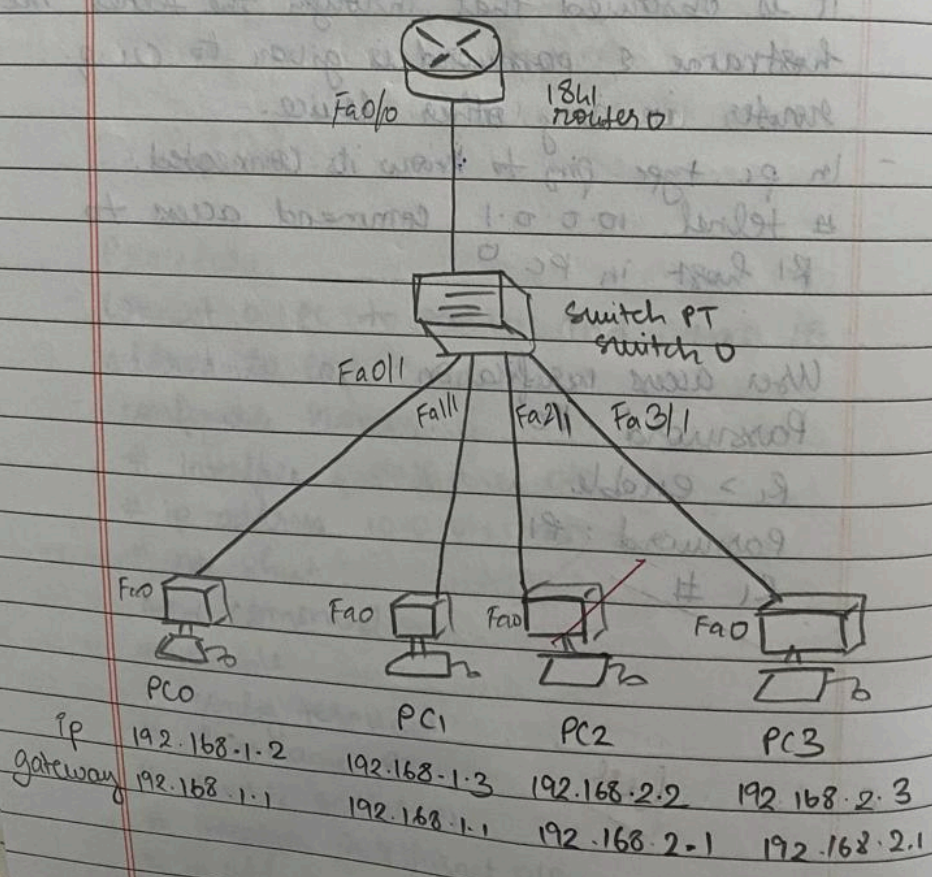 Fa0/0
1841
router 0
Switch PT
Switch 0
Fa0/1
Fa1/1
Fa2/1
Fa3/1
Fa0
Fa0
Fa0
Fa0
PC0
PC1
PC2
PC3
ip 192.168.1.2 192.168.1.3 192.168.2.2 192.168.2.3
gateway 192.168.1.1 192.168.1.1 192.168.2.1 192.168.2.1